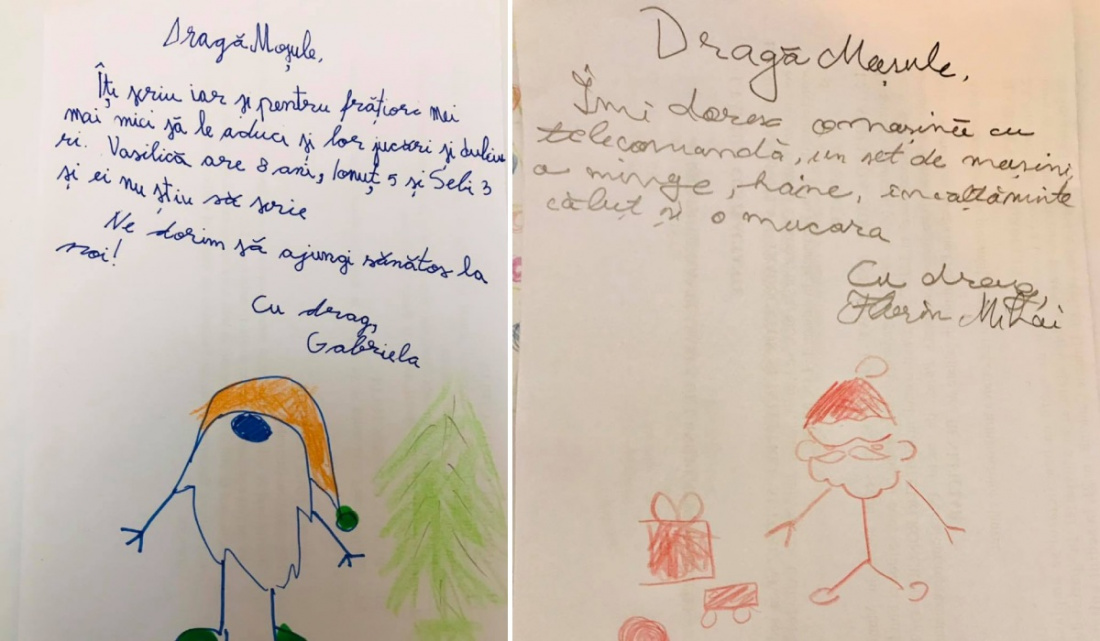 Dragă Moșule,
Îți scriu iar și pentru frățiori mei
mai mici să le aduci și lor jucări și dulciu
ri. Vasilică are 8 ani, Ionuț 5 și Sebi 3
și ei nu știu să scrie
Ne dorim să ajungi sănătos la
noi!
Cu drag,
Gabriela
Dragă Moșule,
Îmi doresc o mașină cu
telecomandă, un set de mașini,
o minge, haine, încălțăminte
căluț și o macara
Cu drag,
Florin Mihai